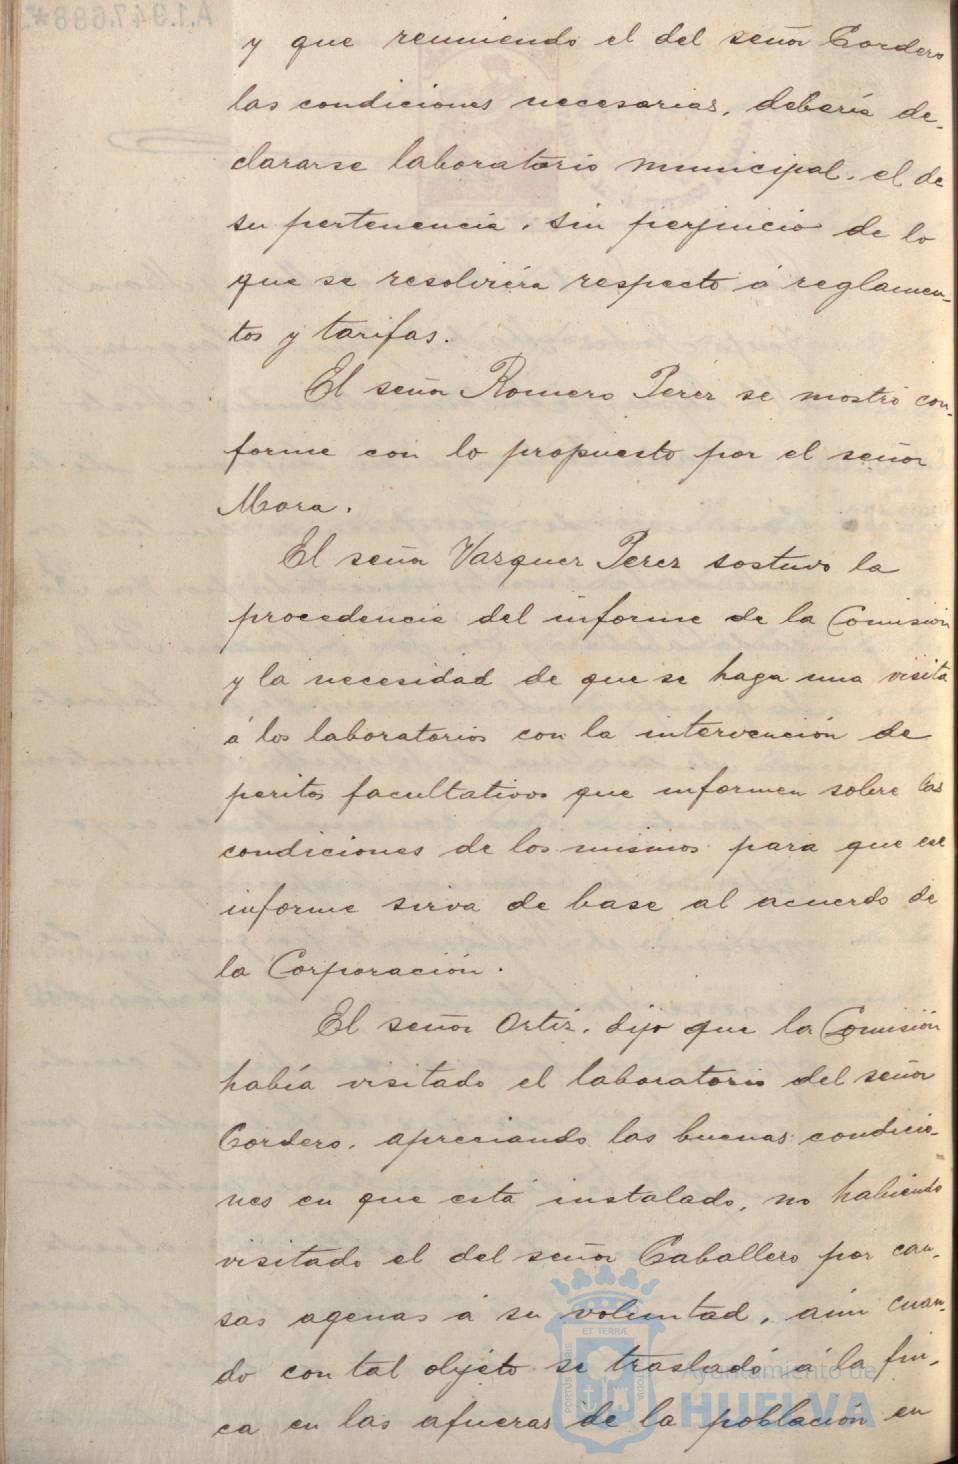 y que reuniendo el del señor Cordero
las condiciones necesarias, debería de-
clararse laboratorio municipal, el de
su pertenencia, sin perjuicio de lo
que se resolviera respecto á reglamen-
tos y tarifas.
El señor Romero Perez se mostró con-
forme con lo propuesto por el señor
Mora.
El señor Vazquez Perez sostuvo la
procedencia del informe de la Comisión
y la necesidad de que se haga una visita
á los laboratorios con la intervención de
peritos facultativos que informen sobre las
condiciones de los mismos para que ese
informe sirva de base al acuerdo de
la Corporación.
El señor Ortiz, dijo que la Comisión
había visitado el laboratorio del señor
Cordero, apreciando las buenas condicio-
nes en que está instalado, no habiendo
visitado el del señor Caballero por cau-
sas agenas á su voluntad, aún cuan-
do con tal objeto se trasladó á la fin-
ca en las afueras de la población en
Ayuntamiento de
HUELVA
PORTUS MARIS
ET TERRÆ
CUSTODIA